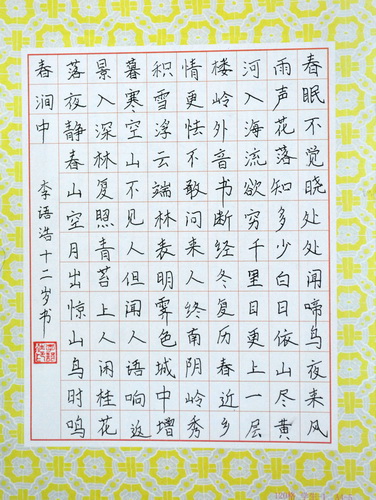 春眠不觉晓处处闻啼鸟夜来风
雨声花落知多少白日依山尽黄
河入海流欲穷千里目更上一层
楼岭外音书断经冬复历春近乡
情更怯不敢问来人终南阴岭秀
积雪浮云端林表明霁色城中增
暮寒空山不见人但闻人语响返
景入深林复照青苔上人闲桂花
落夜静春山空月出惊山鸟时鸣
春涧中 李语浩十二岁书